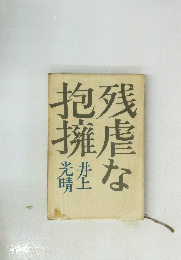 残虐な
抱擁
井上
光晴